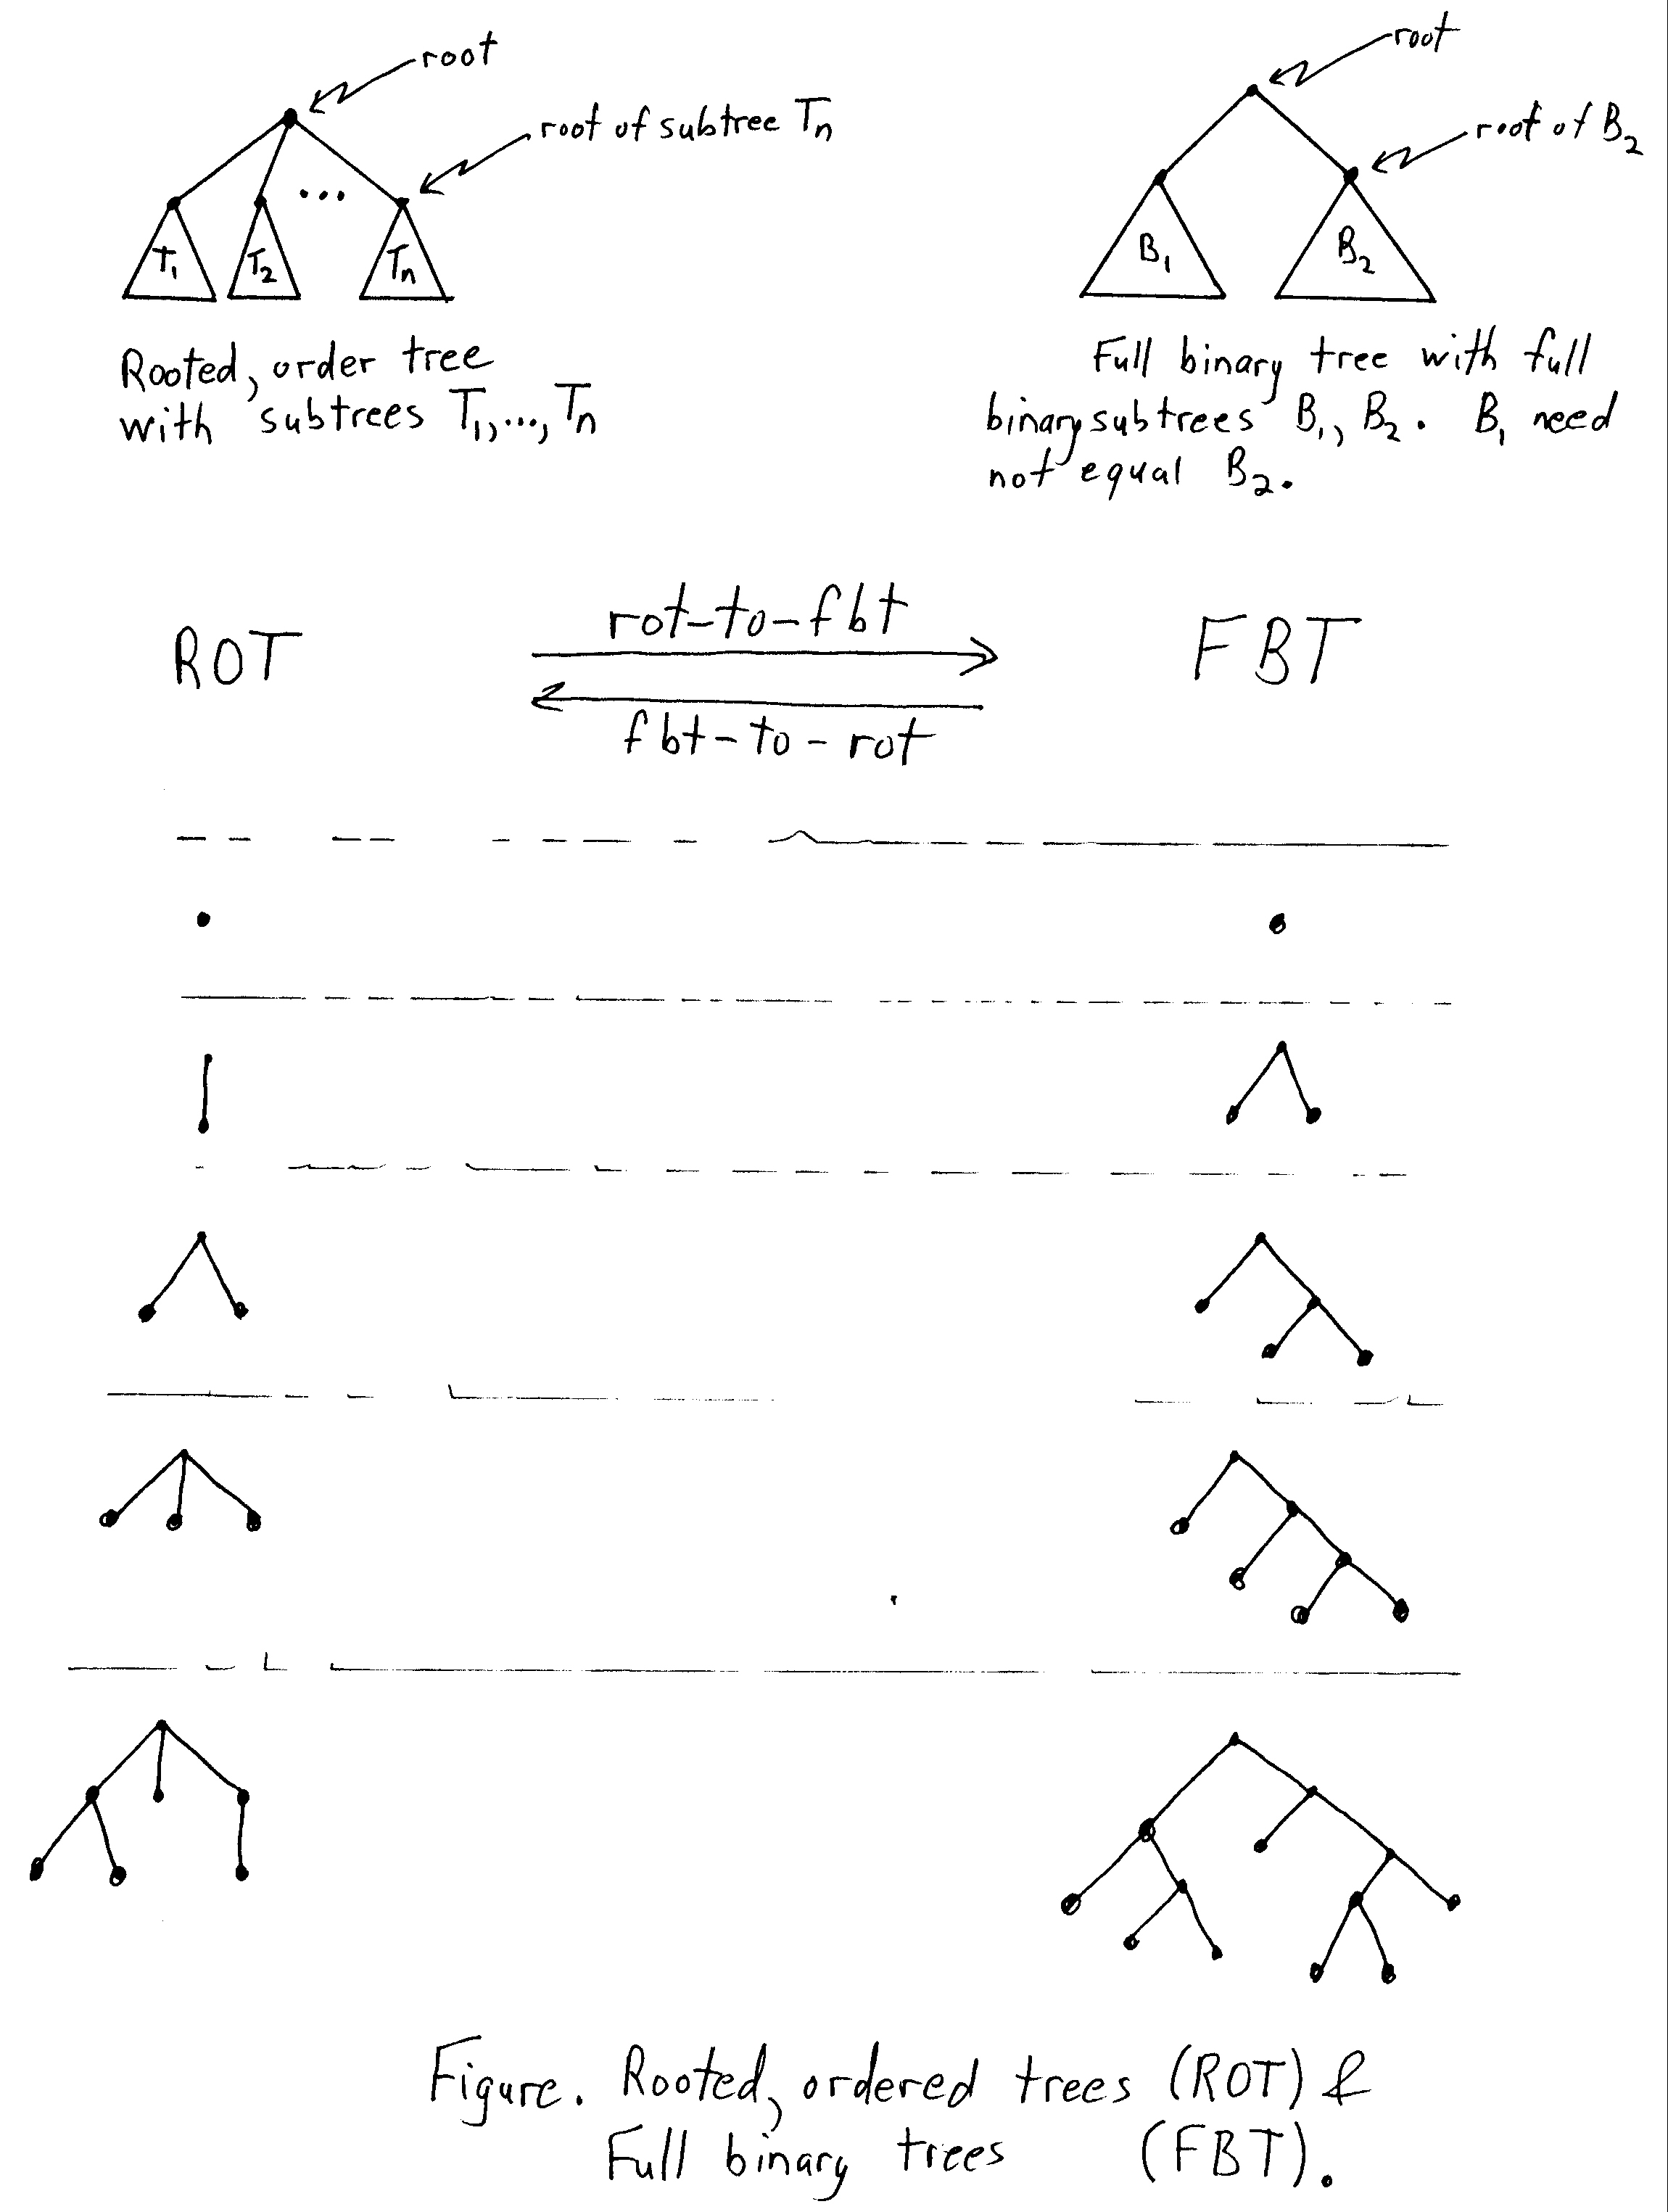 root
root of subtree Tn
T1
T2
...
Tn
Rooted, order tree
with subtrees T1,..., Tn
root
root of B2
B1
B2
Full binary tree with full
binary subtrees B1, B2. B1 need
not equal B2.
ROT
rot-to-fbt
fbt-to-rot
FBT
Figure. Rooted, ordered trees (ROT) &
Full binary trees (FBT).